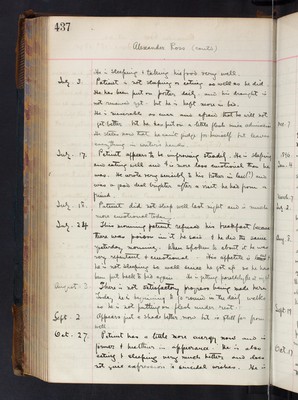 437
Alexander Ross (contd)
He is sleeping & taking his food very well.
July 3. Patient is not sleeping or eating as well as he did
He has been put on porter daily and his draught is
not renewed yet. but he is kept more in bed.
He is miserable as ever and afraid that he will not
get better. but he has put on a little flesh since admission
He states now that he can't judge for himself but leaves
everything in doctor's hands.
July 17. Patient appears to be improving steadily. He is sleeping
and eating well and is more less emotional than he
was. He wrote very sensibly to his brother in law (!) and
was a good deal brighter after a visit he had from a
friend.
July 18. Patient did not sleep well last night and is much
more emotional today.
July 24 This morning patient refused his breakfast because
there was poison in it he said & he did the same
yesterday morning. When spoken to about it he was
very repentant & emotional. His appetite is
he is not sleeping so well since he got up so he has
been put back to bed again.
August 3. There is not satisfactory progress being made here
Today he is beginning to go round in the daily walks
as he is not putting on flesh under rest.
Sept. 2 Appears just a shade better now but is still far from
well.
Oct. 27. Patient has a little more energy now and is
firmer & healthier in appearance. He is also
eating & sleeping very much better and does
not give expression to suicidal wishes. He is
1896
Jan. 4
March 7
Aug 5.
Sept. 19
Oct. 17